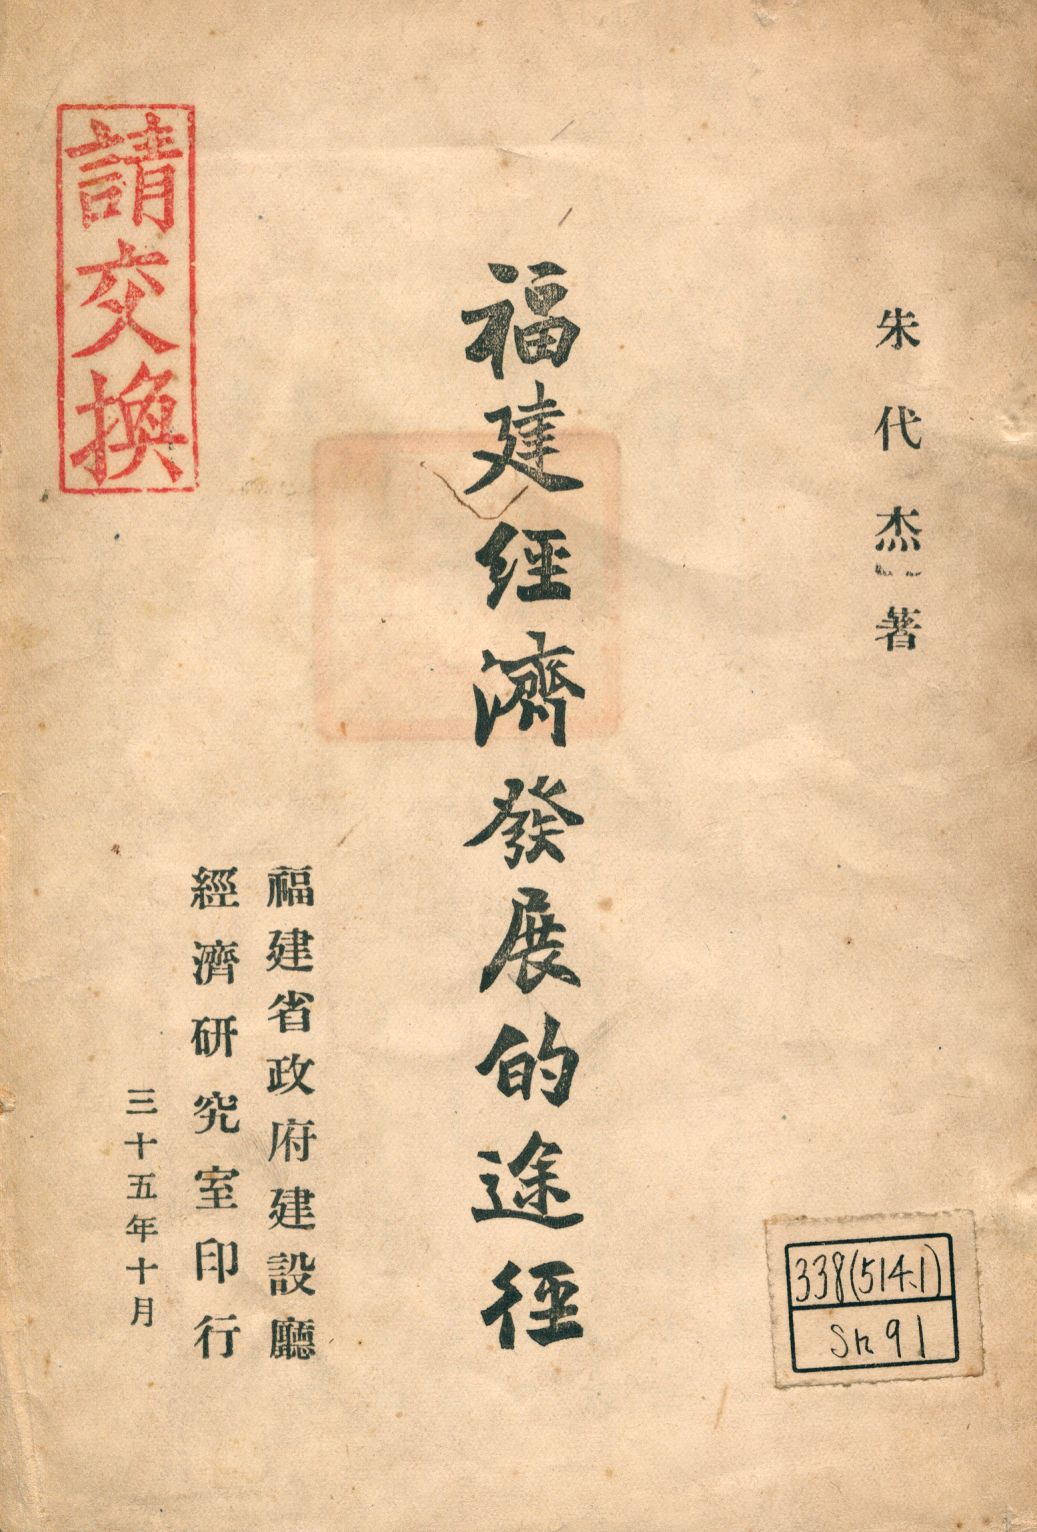 朱代杰著
福建經濟發展的途徑
福建省政府建設廳
經濟研究室印行
三十五年十月
請交換
338(514.1)
Sh91